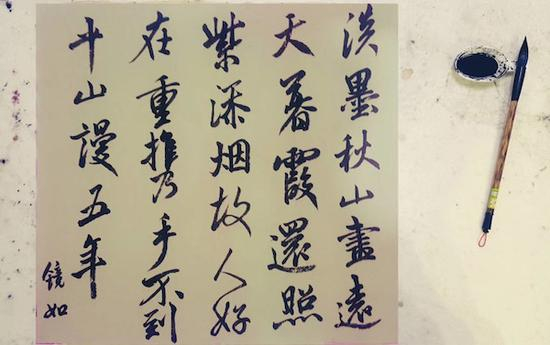 淡墨秋山盡遠
天暮霞還照
紫添烟故人好
在重携手不到
平山謾五年
镜如